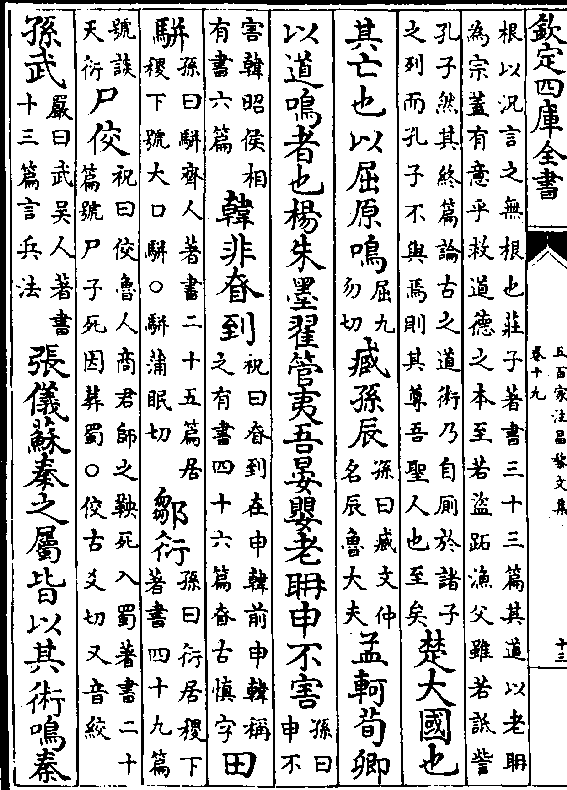 欽定四庫全書
五百家注昌黎文集
卷十九
十三
根以況言之無根也莊子著書三十三篇其道以老聃
為宗蓋有意乎救道德之本至若盜跖漁父雖若詆訾
孔子然其終篇論古之道術乃自厠於諸子
之列而孔子不與焉則其尊吾聖人也至矣
楚大國也
其亡也以屈原鳴
屈九
勿切
臧孫辰
孫曰臧文仲
名辰魯大夫
孟軻荀卿
以道鳴者也楊朱墨翟管夷吾晏嬰老聃申不害
孫曰
申不
害韓昭侯相
有書六篇
韓非昚到
祝曰昚到在申韓前申韓稱
之有書四十六篇昚古慎字
田
駢
孫曰駢齊人著書二十五篇居
稷下號大口駢○駢蒲眠切
鄒衍
孫曰衍居稷下
著書四十九篇
號談
天衍
尸佼
祝曰佼魯人商君師之鞅死入蜀著書二十
篇號尸子死因葬蜀○佼古爻切又音絞
孫武
嚴曰武吳人著書
十三篇言兵法
張儀蘇秦之屬皆以其術鳴秦